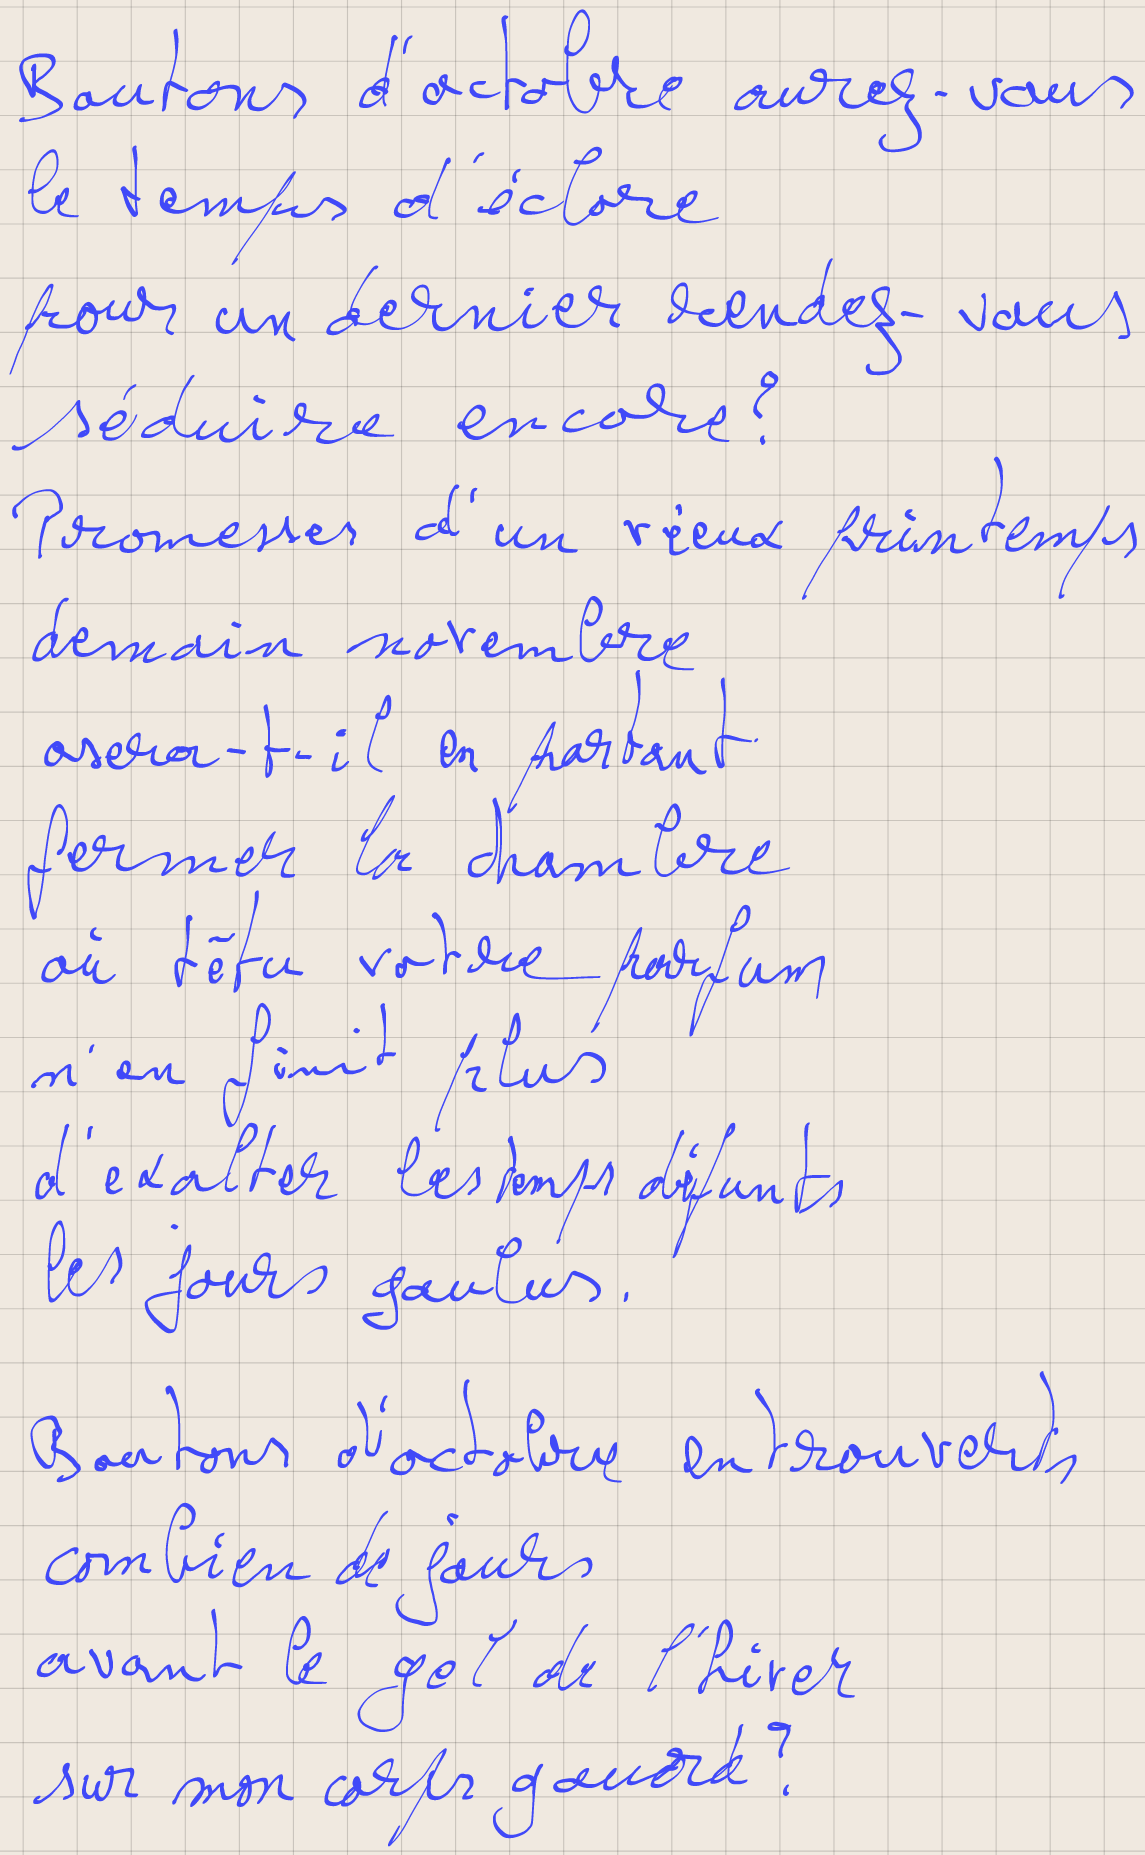 Boutons d'octobre aurez-vous
le temps d'éclore
pour un dernier rendez-vous
séduire encore?
Promesses d'un vieux printemps
demain novembre
osera-t-il en partant
fermer la chambre
où têtu votre parfum
n'en finit plus
d'exalter les temps défunts
les jours goulus.
Boutons d'octobre entrouverts
combien de jours
avant le gel de l'hiver
sur mon corps gourd?